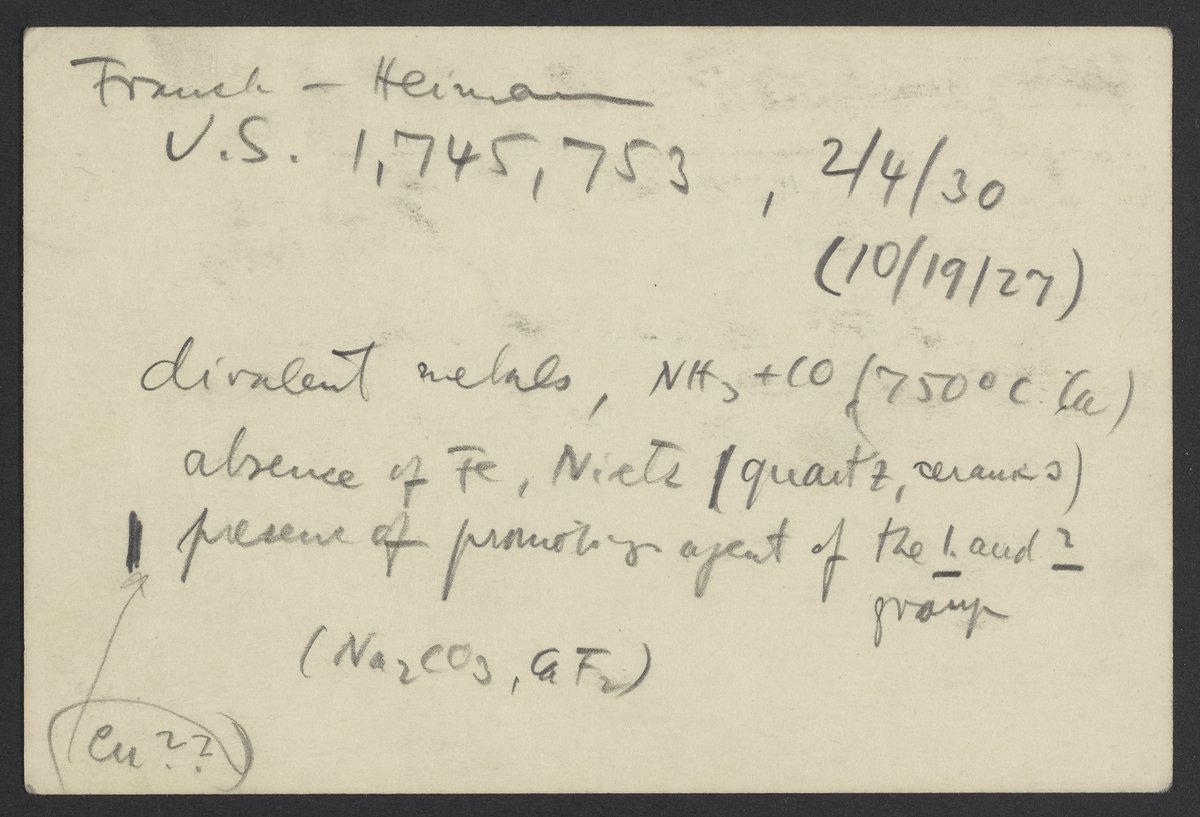 Franck - Heimann
U.S. 1,745,753, 2/4/30
(10/19/27)
divalent metals, NH3 + CO (750° C Ca)
absence of Fe, Ni etc (quartz, ceramics)
presence of promoting agent of the 1. and 2
group
(Na2CO3, CaF2)
(Cu??)